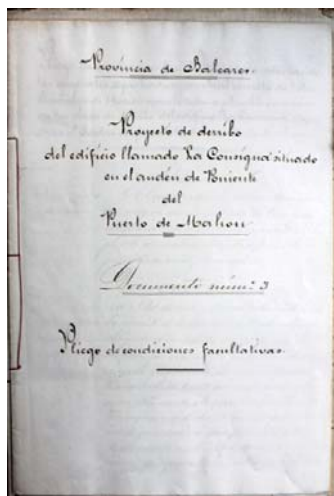 Provincia de Baleares.
Proyecto de derribo
del edificio llamado La Consigna situado
en el andén de Poniente
del
Puerto de Mahon
Documento núm.º 3
Pliego de condiciones facultativas.